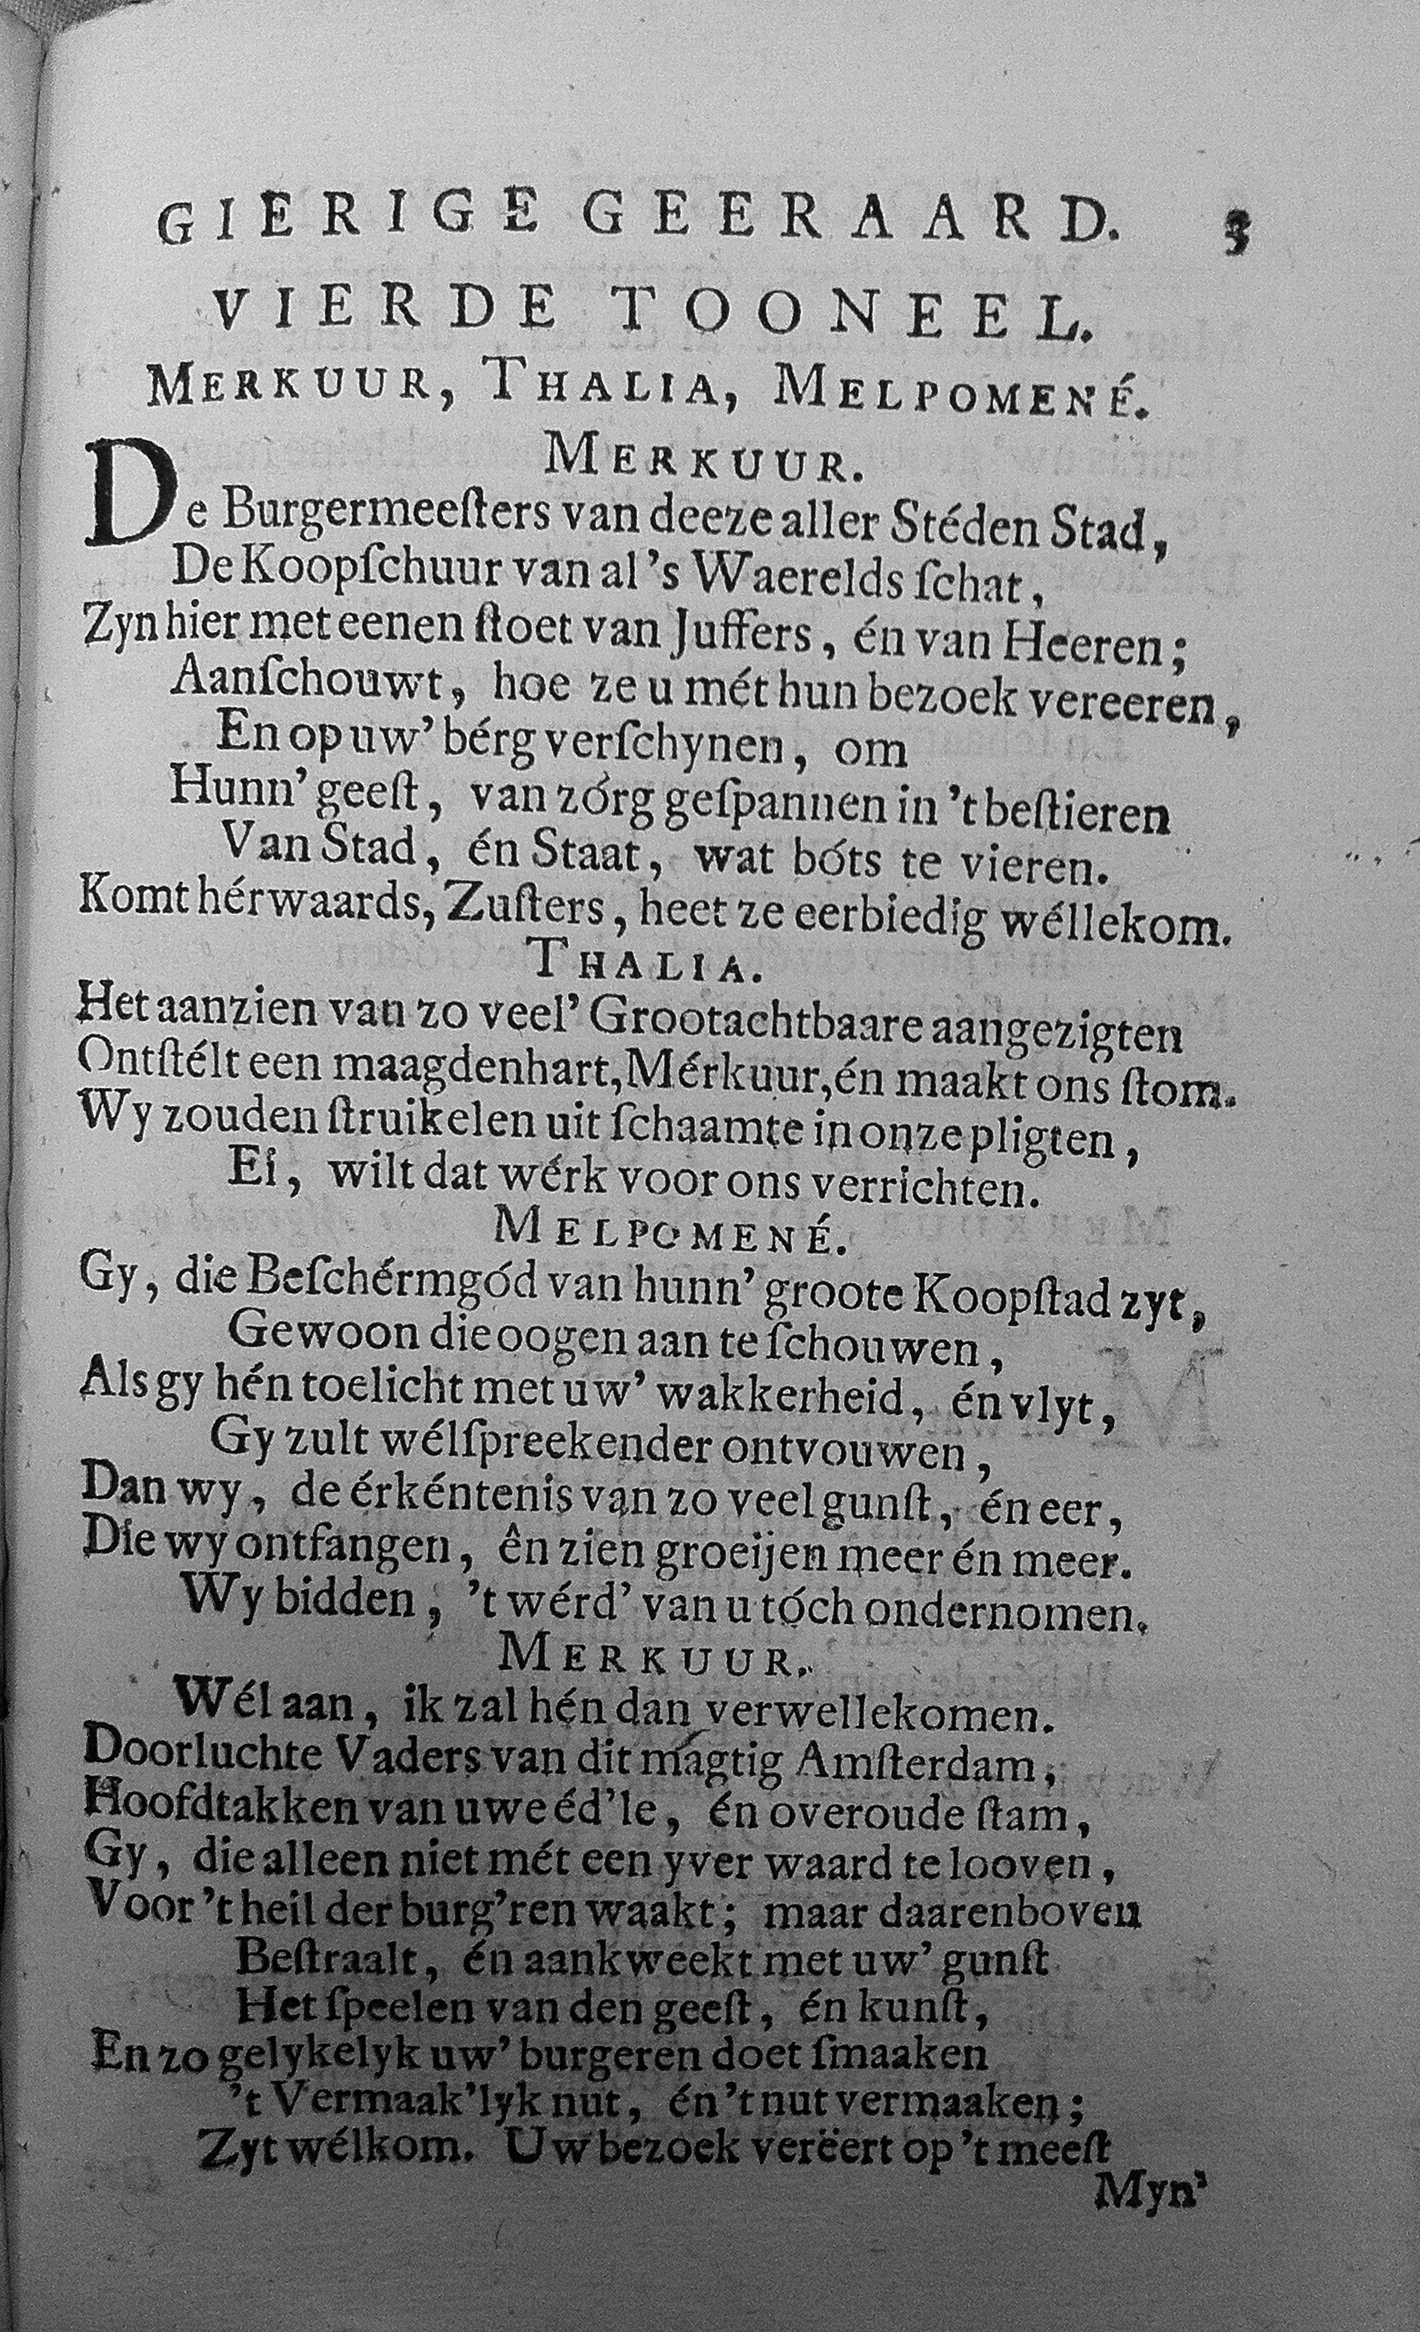 GIERIGE GEERAARD. 3
VIERDE TOONEEL.
MERKUUR, THALIA, MELPOMENÉ.
MERKUUR.
De Burgermeeſters van deeze aller Stéden Stad,
De Koopſchuur van al 's Waerelds ſchat,
Zyn hier met eenen ſtoet van Juffers, én van Heeren;
Aanſchouwt, hoe ze u mét hun bezoek vereeren,
En op uw' bérg verſchynen, om
Hunn' geeſt, van zórg geſpannen in 't beſtieren
Van Stad, én Staat, wat bóts te vieren.
Komt hérwaards, Zuſters, heet ze eerbiedig wéllekom.
THALIA.
Het aanzien van zo veel' Grootachtbaare aangezigten
Ontſtélt een maagdenhart, Mérkuur, én maakt ons ſtom.
Wy zouden ſtruikelen uit ſchaamte in onze pligten,
Ei, wilt dat wérk voor ons verrichten.
MELPOMENÉ.
Gy, die Beſchérmgód van hunn' groote Koopſtad zyt,
Gewoon die oogen aan te ſchouwen,
Als gy hén toelicht met uw' wakkerheid, én vlyt,
Gy zult wélſpreekender ontvouwen,
Dan wy, de érkéntenis van zo veel gunſt, én eer,
Die wy ontfangen, ên zien groeijen meer én meer.
Wy bidden, 't wérd' van u tóch ondernomen.
MERKUUR.
Wél aan, ik zal hén dan verwellekomen.
Doorluchte Vaders van dit mágtig Amſterdam,
Hoofdtakken van uwe éd'le, én overoude ſtam,
Gy, die alleen niet mét een yver waard te looven,
Voor 't heil der burg'ren waakt; maar daarenboven
Beſtraalt, én aankweekt met uw' gunſt
Het ſpeelen van den geeſt, én kunſt,
En zo gelykelyk uw' burgeren doet ſmaaken
't Vermaak'lyk nut, én 't nut vermaaken;
Zyt wélkom. Uw bezoek verëert op 't meeſt
Myn'